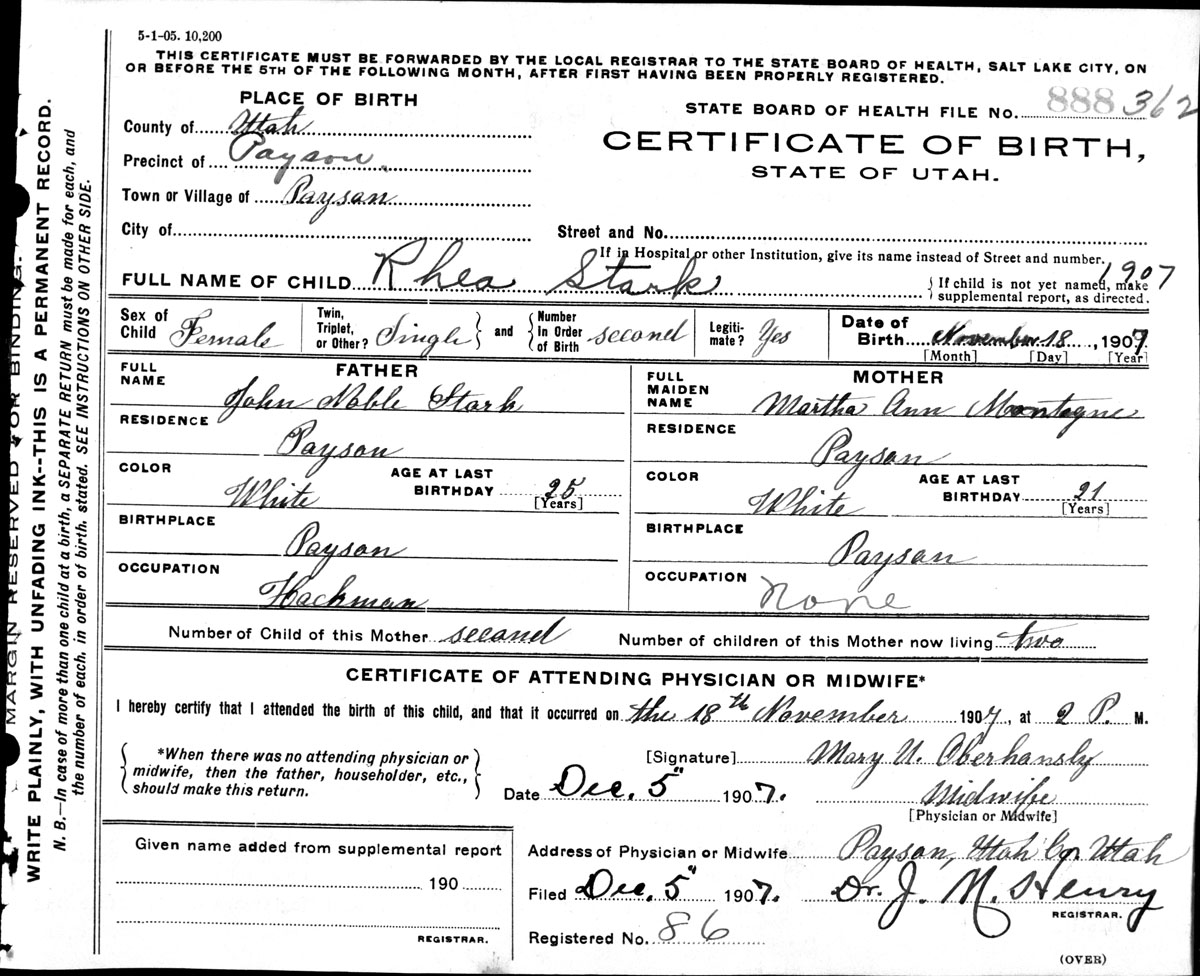 5-1-05. 10,200
THIS CERTIFICATE MUST BE FORWARDED BY THE LOCAL REGISTRAR TO THE STATE BOARD OF HEALTH, SALT LAKE CITY, ON
OR BEFORE THE 5TH OF THE FOLLOWING MONTH, AFTER FIRST HAVING BEEN PROPERLY REGISTERED.
PLACE OF BIRTH
County of Utah
Precinct of Payson
Town or Village of Payson
City of
STATE BOARD OF HEALTH FILE No. 888 362
CERTIFICATE OF BIRTH,
STATE OF UTAH.
Street and No.
If in Hospital or other Institution, give its name instead of Street and number.
1907
FULL NAME OF CHILD Rhea Stark
If child is not yet named, make
supplemental report, as directed.
Sex of Child Female
Twin, Triplet, or Other? Single and Number In Order of Birth second
Legiti-mate? Yes
Date of Birth November 18, 1907
[Month] [Day] [Year]
FATHER
FULL NAME John Noble Stark
RESIDENCE Payson
COLOR White AGE AT LAST BIRTHDAY 25 [Years]
BIRTHPLACE Payson
OCCUPATION Hackman
MOTHER
FULL MAIDEN NAME Martha Ann Montague
RESIDENCE Payson
COLOR White AGE AT LAST BIRTHDAY 21 [Years]
BIRTHPLACE Payson
OCCUPATION None
Number of Child of this Mother second Number of children of this Mother now living two
CERTIFICATE OF ATTENDING PHYSICIAN OR MIDWIFE*
I hereby certify that I attended the birth of this child, and that it occurred on the 18th November 1907, at 2 P. M.
*When there was no attending physician or
midwife, then the father, householder, etc.,
should make this return.
[Signature] Mary U. Oberhansly
Date Dec. 5" 1907. Midwife
[Physician or Midwife]
Given name added from supplemental report
190
REGISTRAR.
Address of Physician or Midwife Payson, Utah Co. Utah
Filed Dec. 5" 1907. Dr. J. M. Henry
REGISTRAR.
Registered No. 86
(OVER)
MARGIN RESERVED FOR BINDING.
WRITE PLAINLY, WITH UNFADING INK--THIS IS A PERMANENT RECORD.
N. B.—In case of more than one child at a birth, a SEPARATE RETURN must be made for each, and
the number of each, in order of birth, stated. SEE INSTRUCTIONS ON OTHER SIDE.